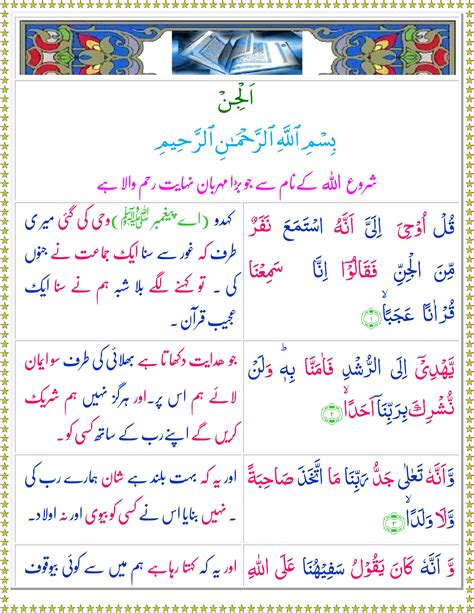 اَلْجِنّ
بِسْمِ اللّٰهِ الرَّحْمٰنِ الرَّحِيمِ
شروع اللہ کے نام سے جو بڑا مہربان نہایت رحم والا ہے
قُلْ اُوْحِیَ اِلَیَّ اَنَّهُ اسْتَمَعَ نَفَرٌ
مِّنَ الْجِنِّ فَقَالُوْۤا اِنَّا سَمِعْنَا
قُرْاٰنًا عَجَبًاۙ ۱
کہدو (اے پیغمبر ﷺ) وحی کی گئی میری
طرف کہ غور سے سنا ایک جماعت نے جنوں
کی ۔ تو کہنے لگے بلا شبہ ہم نے سنا ایک
عجیب قرآن۔
یَّهْدِیْۤ اِلَی الرُّشْدِ فَاٰمَنَّا بِهٖؕ وَلَنْ
نُّشْرِكَ بِرَبِّنَاۤ اَحَدًاۙ ۲
جو ھدایت دکھاتا ہے بھلائی کی طرف سو ایمان
لائے ہم اس پر۔ اور ہرگز نہیں ہم شریک
کریں گے اپنے رب کے ساتھ کسی کو۔
وَّاَنَّهٗ تَعٰلٰی جَدُّ رَبِّنَا مَا اتَّخَذَ صَاحِبَةً
وَّلَا وَلَدًاۙ ۳
اور یہ کہ بہت بلند ہے شان ہمارے رب کی
۔ نہیں بنایا اس نے کسی کو بیوی اور نہ اولاد۔
وَّ اَنَّهٗ كَانَ یَقُوْلُ سَفِیْهُنَا عَلَی اللّٰهِ
اور یہ کہ کہتا رہا ہے ہم میں سے کوئی بیوقوف